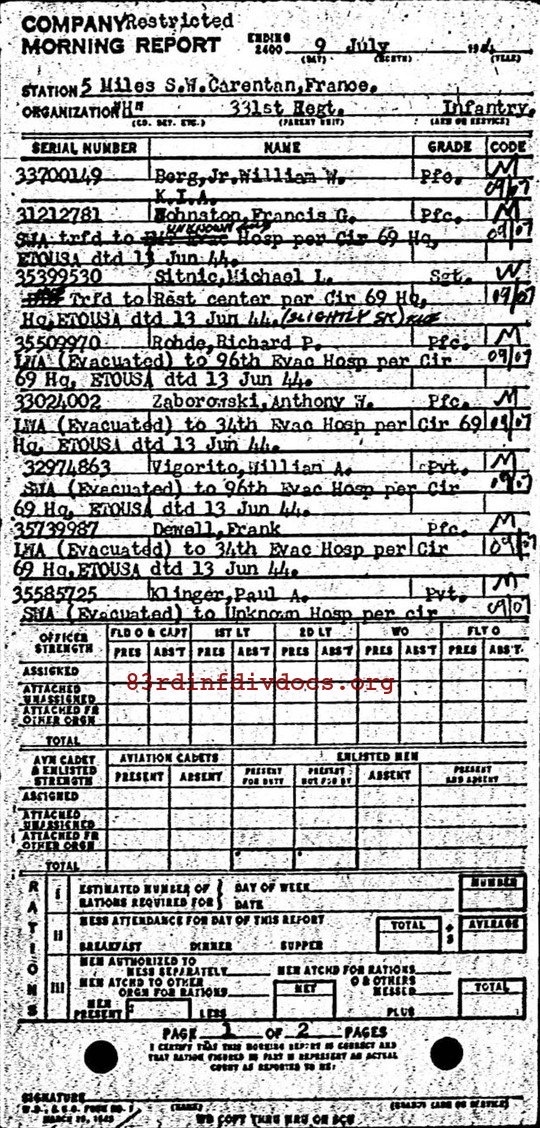 COMPANY Restricted
MORNING REPORT ENDING 2400 9 July 194
(DAY) (MONTH) (YEAR)
STATION 5 Miles S.W.Carentan,France.
ORGANIZATION "H" 331st Regt. Infantry.
(CO. DET. ETC.) (PARENT UNIT) (ARM OR SERVICE)
SERIAL NUMBER NAME GRADE CODE
33700149 Berg,Jr.William W. Pfc. M
K.I.A. 09/07
31212781 Johnston,Francis G. Pfc. M
UNKNOWN
SWA trfd to Evac Hosp per Cir 69 Hq, 09/07
ETOUSA dtd 13 Jun 44.
35399530 Sitnic,Michael L. Sgt. W
Trfd to Rest center per Cir 69 Hq, 09/07
Hq,ETOUSA dtd 13 Jun 44. (SLIGHTLY SK)
35509970 Rohde,Richard P. Pfc. M
LWA (Evacuated) to 96th Evac Hosp per Cir 09/07
69 Hq, ETOUSA dtd 13 Jun 44.
33024002 Zaborowski,Anthony W. Pfc. M
LWA (Evacuated) to 34th Evac Hosp per Cir 69 09/07
Hq. ETOUSA dtd 13 Jun 44.
32974863 Vigorito,William A. Pvt. M
SWA (Evacuated) to 96th Evac Hosp per Cir 09/07
69 Hq, ETOUSA dtd 13 Jun 44.
35739987 Dewell,Frank Pfc. M
LWA (Evacuated) to 34th Evac Hosp per Cir 09/07
69 Hq,ETOUSA dtd 13 Jun 44.
35585725 Klinger,Paul A. Pvt. M
SWA (Evacuated) to Unknown Hosp per cir 09/07
OFFICER STRENGTH FLD O & CAPT 1ST LT 2D LT WO FLT O
PRES ABS'T PRES ABS'T PRES ABS'T PRES ABS'T PRES ABS'T
ASSIGNED
83rdinfdivdocs.org
ATTACHED UNASSIGNED
ATTACHED FR OTHER ORGN
TOTAL
AVN CADET & ENLISTED STRENGTH AVIATION CADETS ENLISTED MEN
PRESENT ABSENT PRESENT FOR DUTY PRESENT NOT FOR DY ABSENT PRESENT AND ABSENT
ASSIGNED
ATTACHED UNASSIGNED
ATTACHED FR OTHER ORGN
TOTAL
RATIONS
I ESTIMATED NUMBER OF RATIONS REQUIRED FOR DAY OF WEEK DATE NUMBER
II MESS ATTENDANCE FOR DAY OF THIS REPORT TOTAL ÷ 3 AVERAGE
BREAKFAST DINNER SUPPER
III MEN AUTHORIZED TO MESS SEPARATELY MEN ATCHD FOR RATIONS
MEN ATCHD TO OTHER ORGN FOR RATIONS NET O & OTHERS MESSED TOTAL
MEN PRESENT LESS PLUS
PAGE 1 OF 2 PAGES
I CERTIFY THAT THIS MORNING REPORT IS CORRECT AND
THAT RATION FIGURES IN PART III REPRESENT AN ACTUAL
COUNT AS REPORTED TO ME:
SIGNATURE
(NAME) (GRADE) (ARM OR SERVICE)
W.D., A.G.O. FORM NO. 1
MARCH 25, 1943